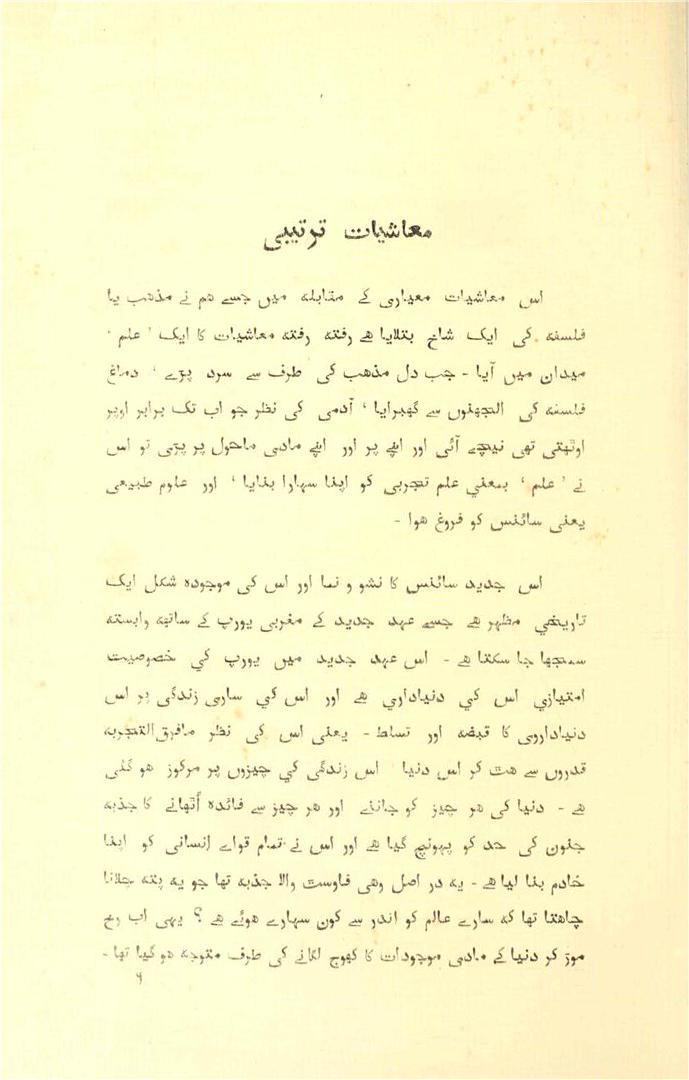 معاشیات ترتیبی
اس معاشیات معیاری کے مقابلہ میں جسے ھم نے مذھب یا
فلسفہ کی ایک شاخ بتلایا ھے رفتہ رفتہ معاشیات کا ایک ’ علم ‘
میدان میں آیا - جب دل مذھب کی طرف سے سرد پڑے ‘ دماغ
فلسفہ کی الجھنوں سے گھبرایا ‘ آدمی کی نظر جو اب تک برابر اوپر
اوٹھتی تھی نیچے آئی اور اپنے پر اور اپنے مادی ماحول پر پڑی تو اس
نے ’ علم ‘ بمعنی علم تجربی کو اپنا سہارا بنایا ‘ اور علوم طبیعی
یعنی سائنس کو فروغ ھوا -
اس جدید سائنس کا نشو و نما اور اس کی موجودہ شکل ایک
تاریخی مظہر ھے جسے عہد جدید کے مغربی یورپ کے ساتھ وابستہ
سمجھا جا سکتا ھے - اس عہد جدید میں یورپ کي خصوصیت
امتیازي اس کي دنیاداري ھے اور اس کي ساری زندگی پر اس
دنیاداروی کا قبضہ اور تسلط - یعنی اس کی نظر مافوق‌التجربہ
قدروں سے ھٹ کر اس دنیا ‘ اس زندگی کي چیزوں پر مرکوز ھو گئی
ھے - دنیا کی ھر چیز کو جاننے اور ھر چیز سے فائدہ اُٹھانے کا جذبہ
جنون کی حد کو پہونچ گیا ھے اور اس نے تمام قواے انسانی کو اپنا
خادم بنا لیا ھے - یہ در اصل وھی فاوست والا جذبہ تھا جو یہ پتہ چلانا
چاھتا تھا کہ سارے عالم کو اندر سے کون سہارے ھوئے ھے ؟ یہی اب رخ
موڑ کر دنیا کے مادی موجودات کا کھوج لگانے کی طرف متوجہ ھو گیا تھا -